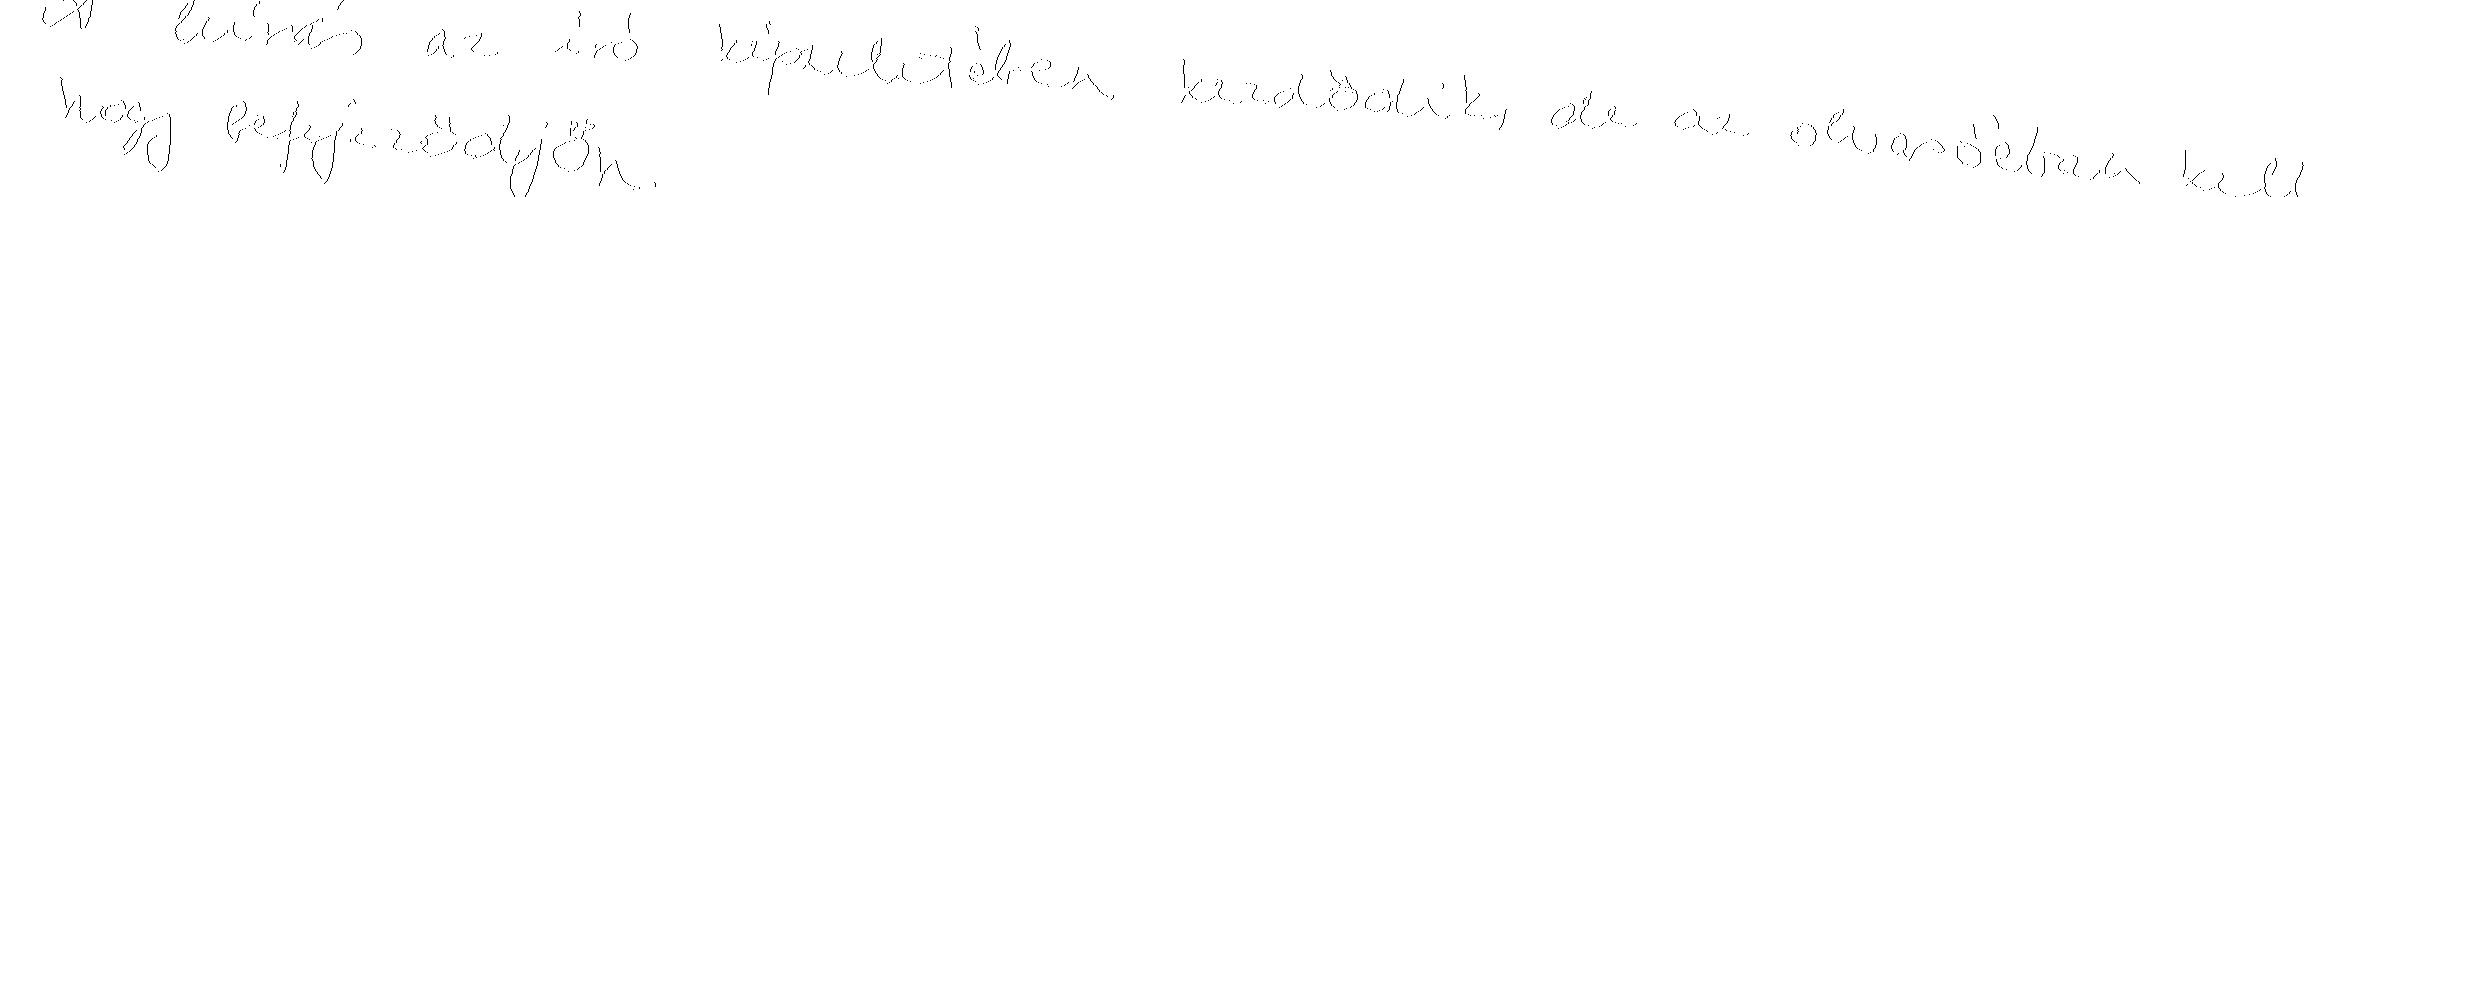 A leírás az író képzeletében kezdődik, de az olvasóéban kell
hogy befejeződjön.